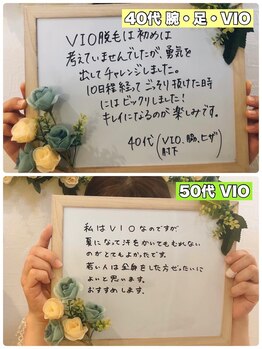 40代 腕・足・VIO
VIO脱毛は初めは
考えていませんでしたが、勇気を
出してチャレンジしました。
10日程経ってごっそり抜けた時
にはビックリしました！
キレイになるのが楽しみです。
40代(VIO、腕、ヒザ下)
50代 VIO
私はVIOなのですが
夏になって汗をかいてもむれない
のがとてもよかったです。
若い人は全身をした方がぜったいに
よいと思います。
おすすめします。